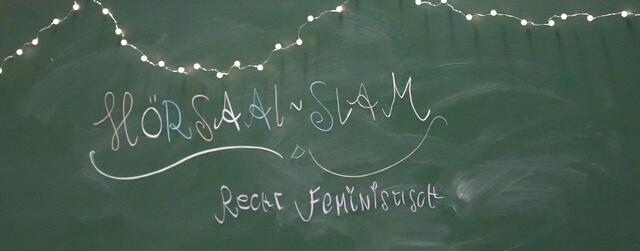 HÖRSAAL~SLAM
Recht Feministisch